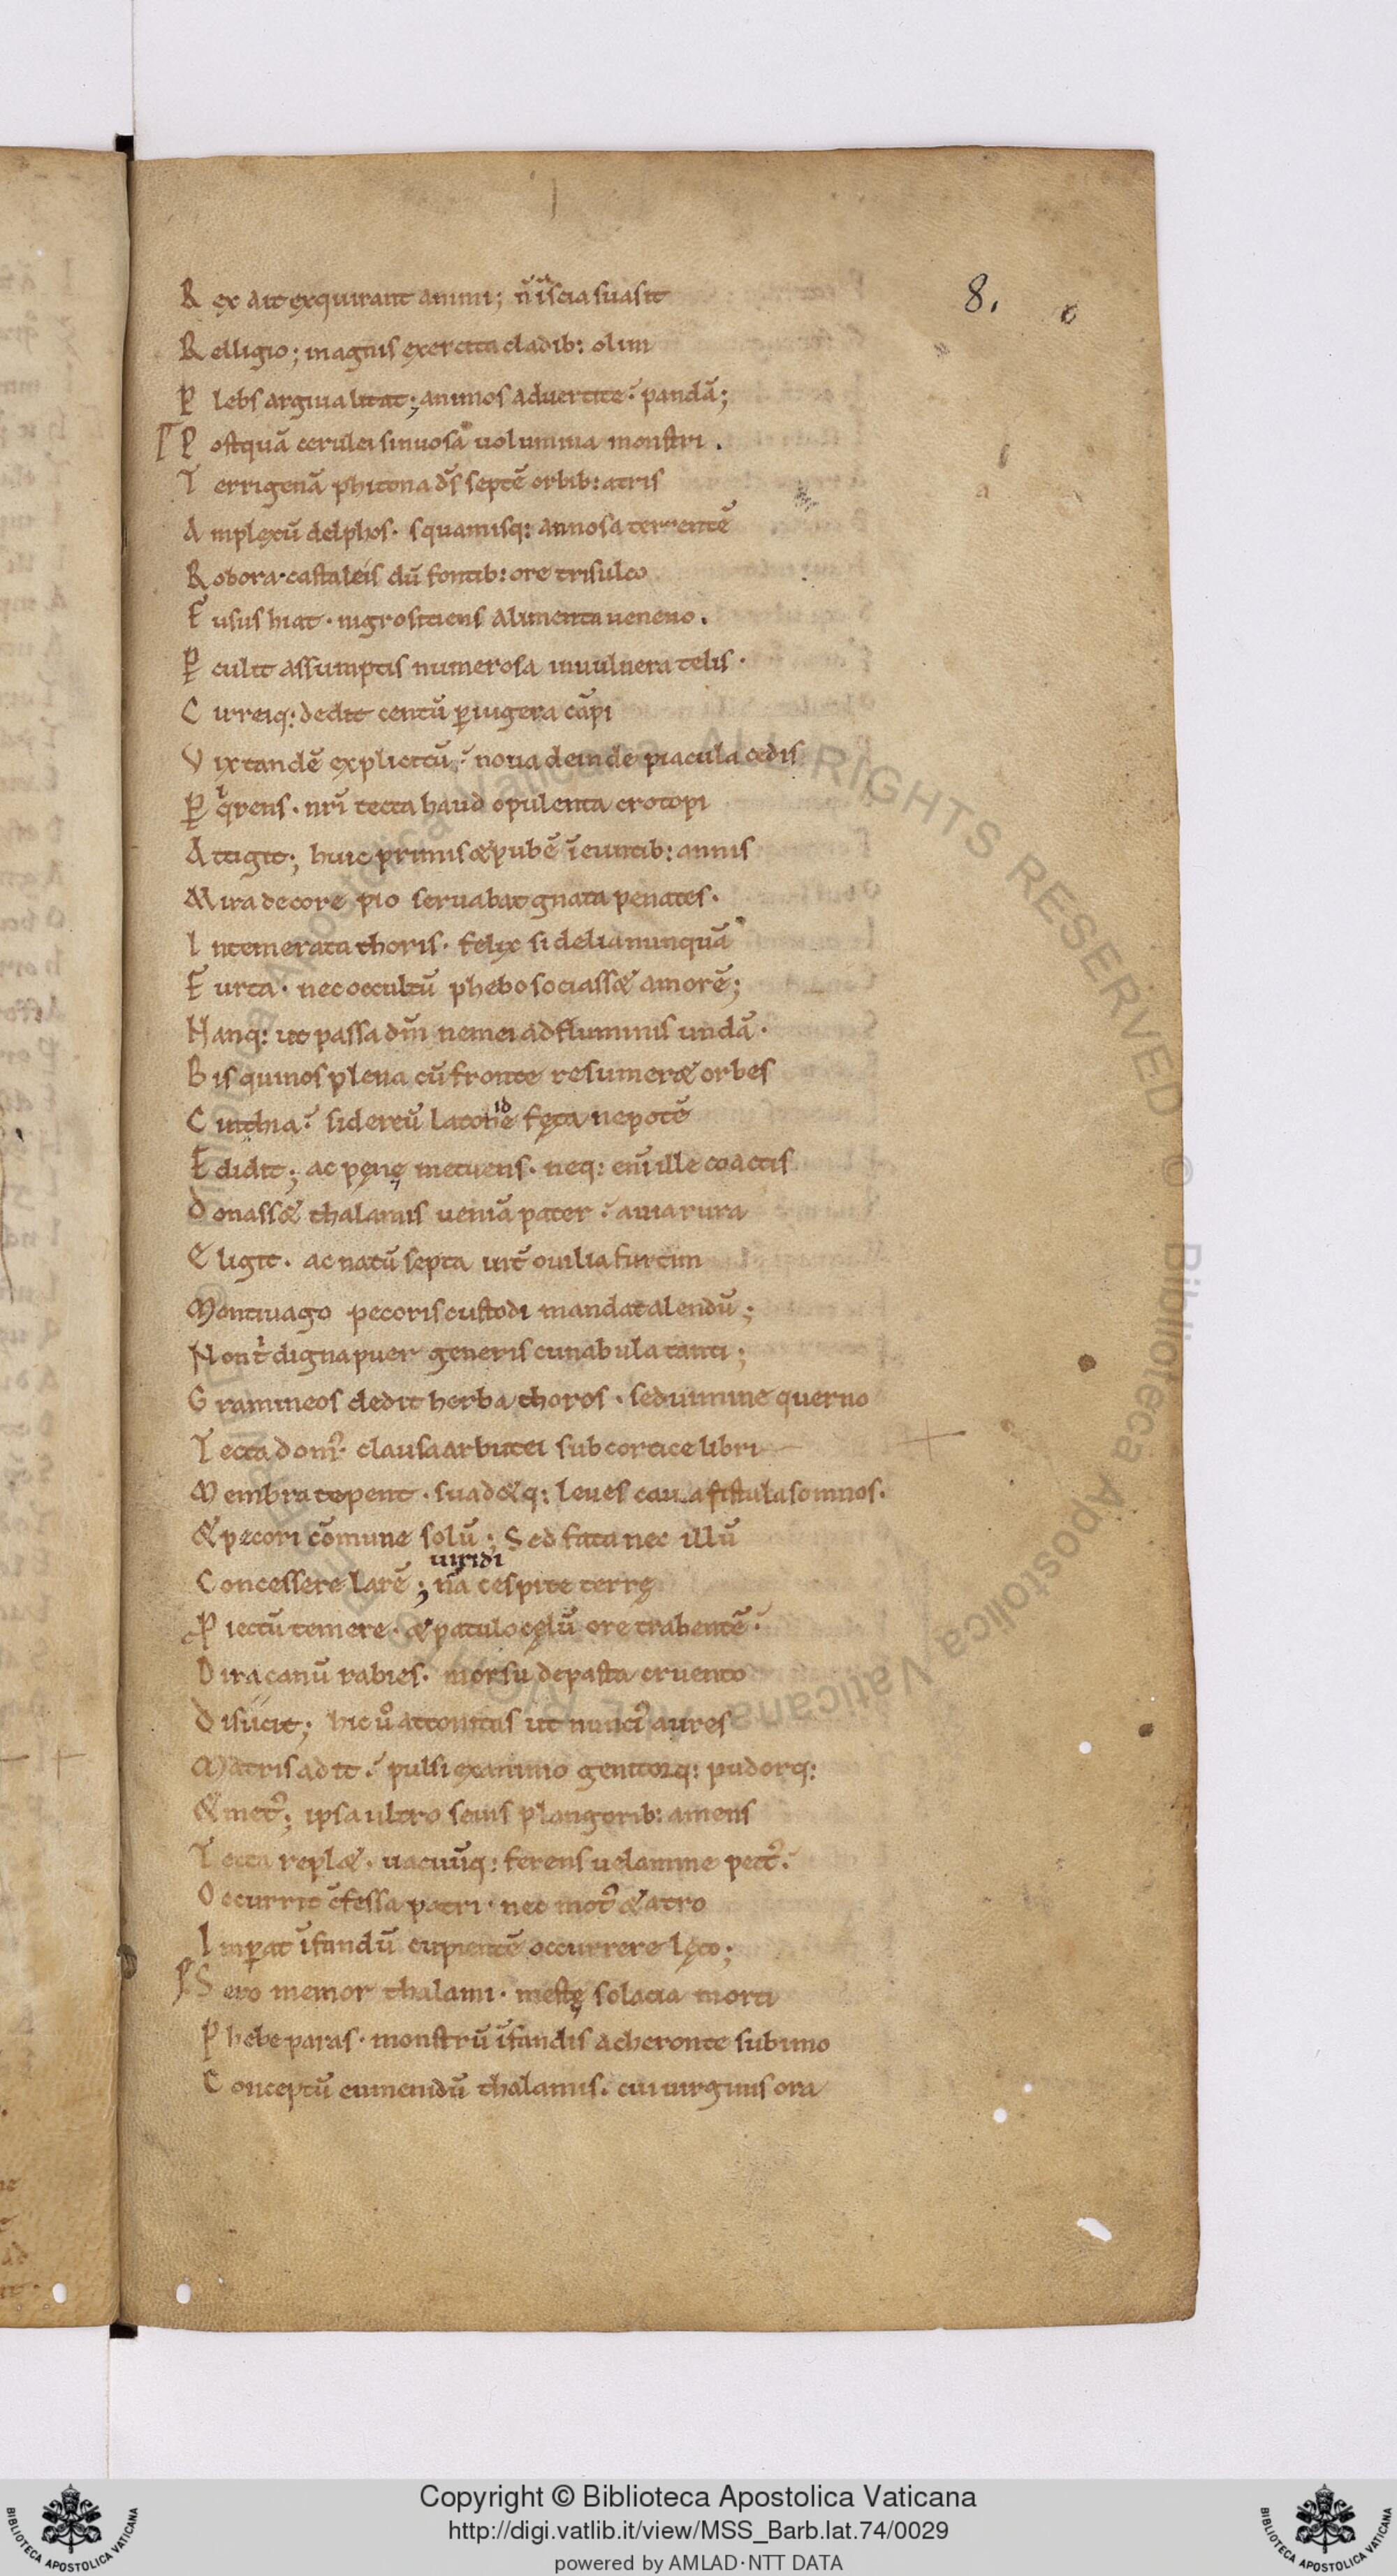 8.
R ex ait exquirant animi; n̄ īscia suasit
R elligio; magnis exercita cladib: olim
P lebs argiua litat; animos aduertite. pandā;
P ostquā cerulei sinuosa uolumina monstri.
T errigenā phitona ds̄ septē orbib: atris
A mplexū delphos. squamisq: annosa terrentē
R obora. castaleis dū fontib: ore trisulco
F usus hiat. nigro sitiens alimenta ueneno.
P̱ culit assumptis numerosa inuulnera telis.
C irreiq: dedit centū ꝑ iugera cāpi
V ix tandē explicitū. noua deinde piacula cedis
P̱ q̇rens. nr̄i tecta haud opulenta crotopi
A ttigit; huic primis & pubē īeuntib: annis
M ira decore pio seruabat gnata penates.
I ntemerata thoris. felix si delia nunquā
F urta. nec occultū phebo sociass& amorē;
H anq: ut passa dm̄ nemei ad fluminis undā.
B is quinos plena cū fronte resumer& orbes
C inthia. sidereū latone id fęta nepotē
E didit; ac pęnę metuens. neq: eni ille coactis
D onass& thalamis ueniā pater. auia rura
E ligit. ac natū septa int̄ ouilia furtim
M ontiuago pecoris custodi mandat alendū;
N on t̄ digna puer generis cunabula tanti;
G ramineos dedit herba thoros. sed uimine querno
T ecta dom᷒. clausa arbutei sub cortice libri
M embra tepent. suad&q: leues caua fistula somnos.
& pecori cōmune solū; Sed fata nec illū
uiridi
C oncessere larē; nā cespite terrę
P iectū temere. & patulo cęlū ore trahentē.
D ira canū rabies. morsu depasta cruento
D isiicit; hic u͛o attonitas ut nunci᷒ aures
M atris adit. pulsi ex animo genitorq: pudorq:
& met᷒; ipsa ultro seuis plangorib: amens
T ecta repl&. uacuūq: ferens uelamine pect᷒.
O ccurrit c̄fessa patri. nec mot᷒ & atro
I mꝑat īfandū cupientē occurrere lęto;
S ero memor thalami. mestę solacia morti
P hebe paras. monstrū īfandis acheronte sub imo
C onceptū eumenidū thalamis. cui uirginis ora
Copyright © Biblioteca Apostolica Vaticana
http://digi.vatlib.it/view/MSS_Barb.lat.74/0029
powered by AMLAD·NTT DATA